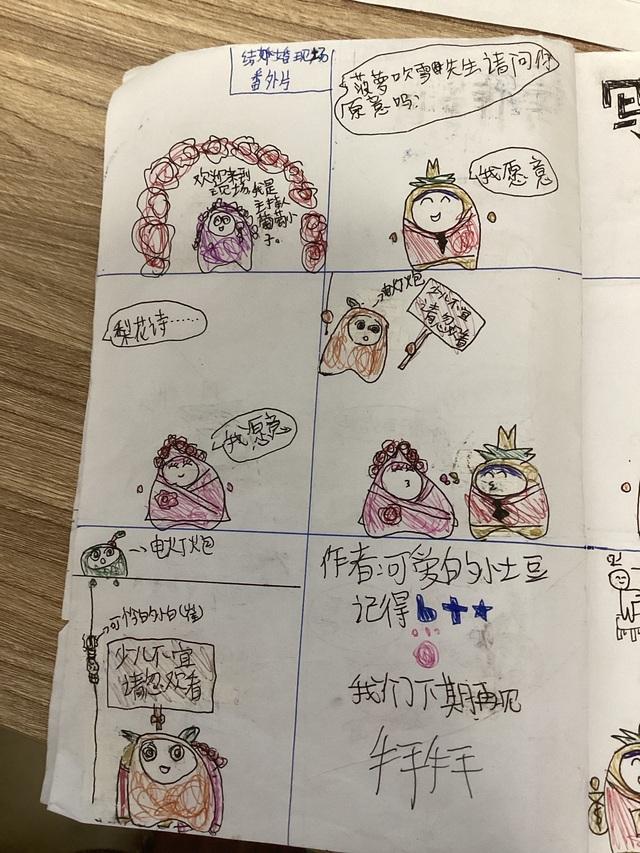 结婚现场
番外片
欢迎来到
现场,我是
主持人
葡萄小
子。
菠萝吹雪先生请问你
愿意吗?
我愿意
梨花诗……
我愿意
电灯炮
少儿不宜
请忽欢看
电灯炮
可怜的小白(雀)
少儿不宜
请忽欢看
作者:可爱的小土豆
记得b+★
我们下期再见